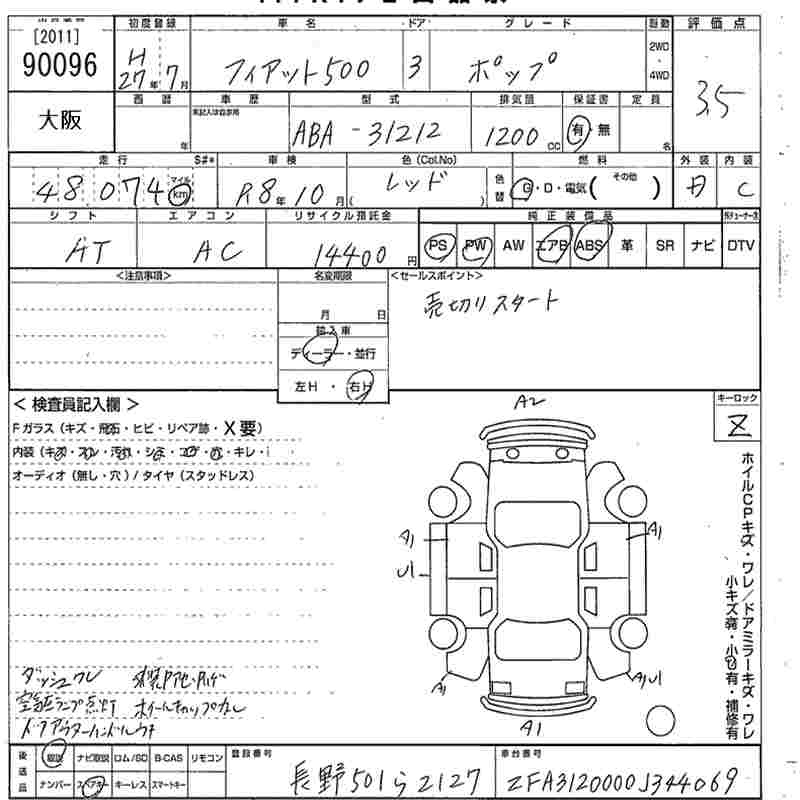 [2011]
90096
大阪
初度登録
H27年7月
車名
フィアット500
ドア
3
グレード
ポップ
駆動
2WD・4WD
評価点
3.5
西暦
年
車歴
未記入は自家用
型式
ABA-31212
排気量
1200cc
保証書
有・無
定員
名
走行
48074
マイル
km
S#*
車検
R8年10月
色(Col.No)
レッド
( )
色替
燃料
G・D・電気(その他 )
外装
内装
C
シフト
AT
エアコン
AC
リサイクル預託金
14400円
純正装備品
PS PW AW エアB ABS 革 SR ナビ DTV
<注意事項>
名変期限
月 日
輸入車
ディーラー・並行
左H・右H
<セールスポイント>
売切りスタート
<検査員記入欄>
Fガラス(キズ・飛石・ヒビ・リペア跡・X要)
内装(キズ・スレ・汚れ・シミ・コゲ・穴・キレ・
オーディオ(無し・穴)/タイヤ(スタッドレス)
キーロック
Z
A2
A1
A1
U1
A1
A1 U1
A1
ホイルCPキズ・ワレ/ドアミラーキズ・ワレ
小キズ有・小凹有・補修有
ダッシュワレ
空気圧ランプ点灯 ホイールキャップなし
ドアアウターハンドルウキ
後送品
取説 ナビ取説 ロム/SD B-CAS リモコン
ナンバー スペアキー キーレス スマートキー
登録番号
長野501ら2127
車台番号
ZFA3120000J344069